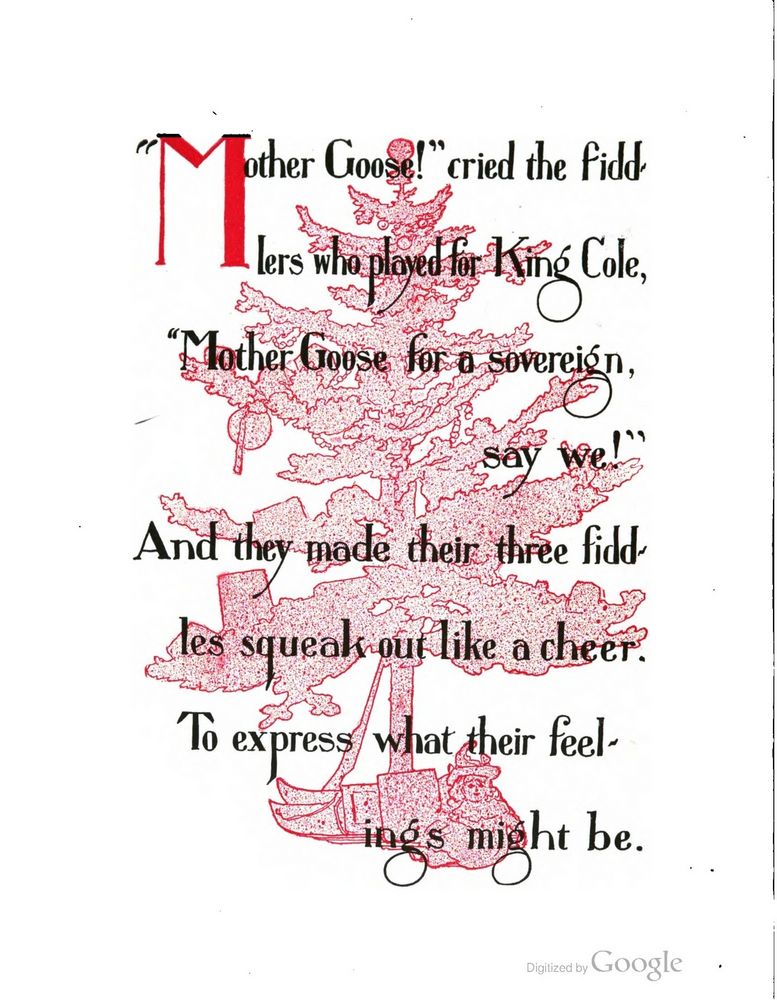 "Mother Goose!" cried the fidd-
lers who played for King Cole,
"Mother Goose for a sovereign,
say we!"
And they made their three fidd-
les squeak out like a cheer.
To express what their feel-
ings might be.
Digitized by Google